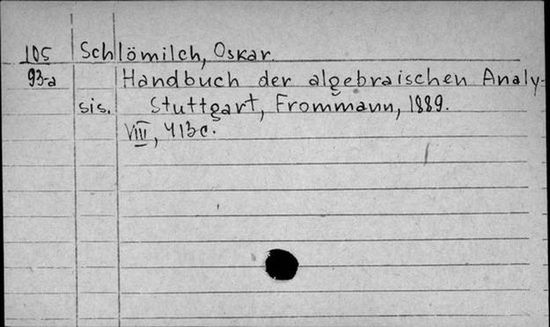 105 Schlömilch, Oskar.
93-a Handbuch der algebraischen Analy-
sis. Stuttgart, Frommann, 1889.
VIII, 413c.